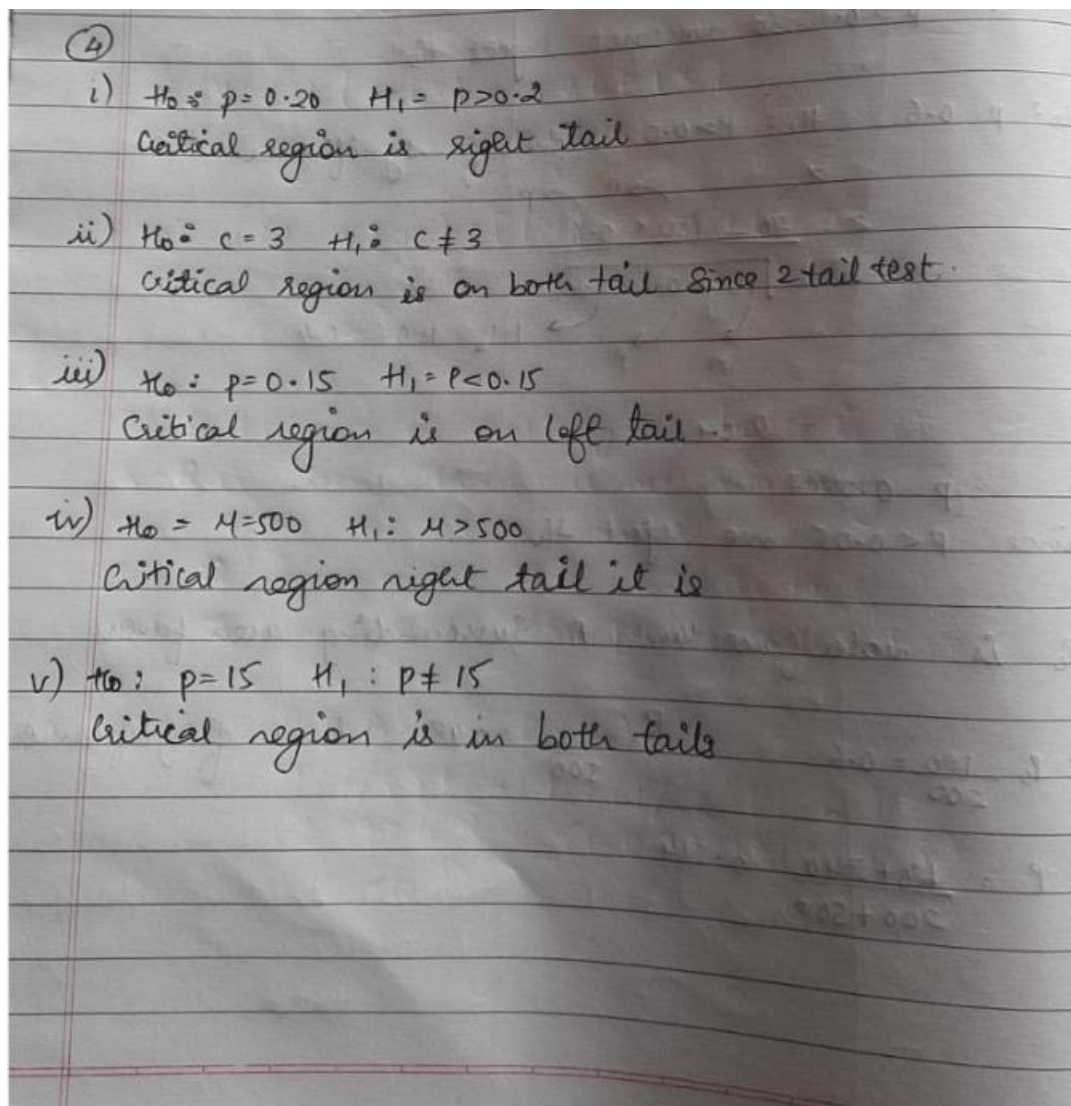 4
i) H₀: p = 0.20 H₁ = P>0.2
Critical region is right tail
ii) H₀: c = 3 H₁: C ≠ 3
Critical region is on both tail since 2 tail test.
iii) H₀: p = 0.15 H₁ = P<0.15
Critical region is on left tail.
iv) H₀ = M=500 H₁: M>500
Critical region right tail it is
v) H₀: p=15 H₁: p≠ 15
Critical region is in both tails